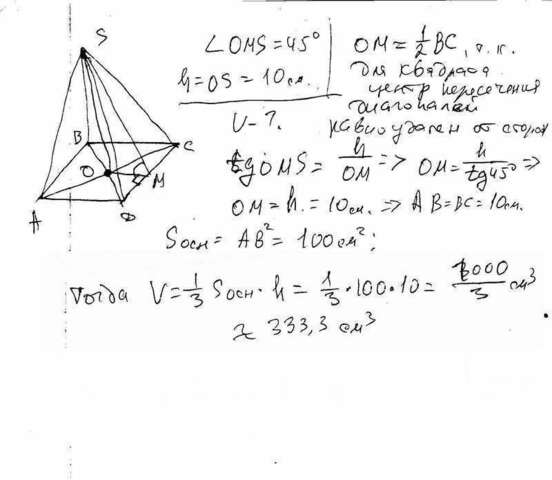 S
B
C
O
M
A
D
∠OMS = 45°
h = OS = 10 см.
V - ?
OM = 1/2 BC, т.к.
для квадрата
центр пересечения
диагоналей
равноудален от сторон
tg OMS = h/OM => OM = h/tg45° =>
OM = h = 10 см. => AB = BC = 10 см.
Sосн = AB² = 100 см²;
Тогда V = 1/3 Sосн · h = 1/3 · 100 · 10 = 1000/3 см³
≈ 333,3 см³